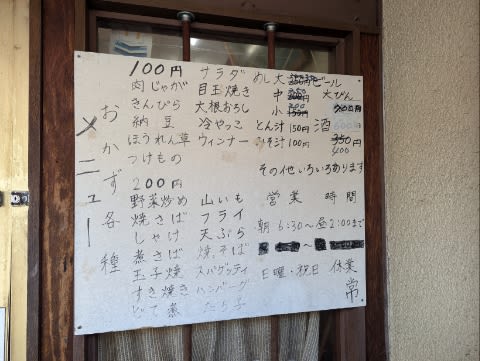 おかず各種
メニュー
100円
肉じゃが
きんぴら
納豆
ほうれん草
つけもの
サラダ
目玉焼き
大根おろし
冷やっこ
ウィンナー
200円
野菜炒め
焼きそば
しゃけ
煮さば
玉子焼
すき焼き
どて煮
山いも
フライ
天ぷら
焼そば
スパゲッティ
ハンバーグ
たら子
めし大
中
小
とん汁 150円
みそ汁 100円
ビール
大びん
酒
350円
400
その他いろいろあります
営業時間
朝6:30~昼2:00まで
日曜・祝日 休業
常